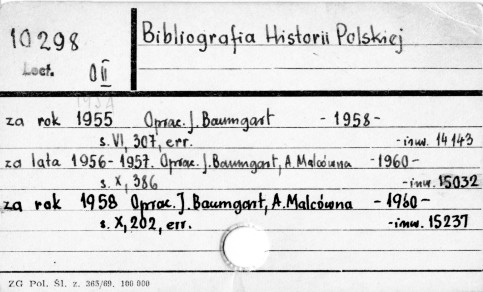 10298
Bibliografia Historii Polskiej
Lect. O II
1954
za rok 1955 Oprac. J. Baumgart - 1958 -
s. VI, 307, err. - inw. 14143
za lata 1956-1957. Oprac. J. Baumgart, A. Malcówna - 1960 -
s. X, 386 - inw. 15032
za rok 1958 Oprac. J. Baumgart, A. Malcówna - 1960 -
s. X, 202, err. - inw. 15237
ZG Pol. Śl. z. 363/69. 100 000